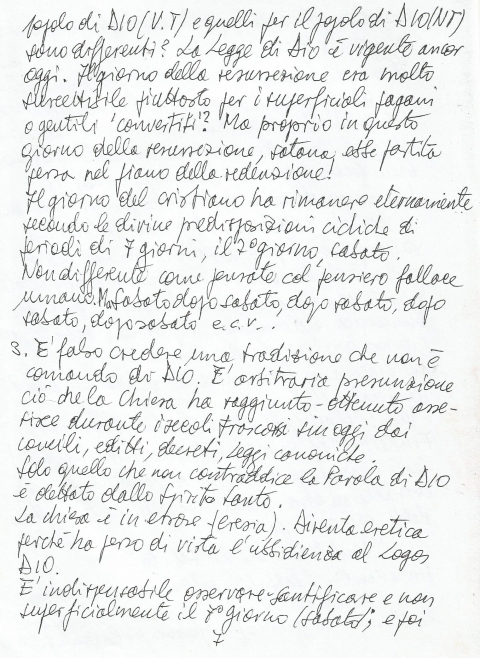 popolo di DIO (V.T) e quelli per il popolo di DIO (NT)
sono differenti? La Legge di Dio è vigente ancor
oggi. Il giorno della resurrezione era molto
suscettibile piuttosto per i superficiali pagani
o gentili 'convertiti'? Ma proprio in questo
giorno della resurrezione, satana, ebbe partita
persa nel piano della redenzione!
Il giorno del cristiano ha rimanere eternamente
secondo le divine predisposizioni cicliche di
periodi di 7 giorni, il 7° giorno, sabato.
Non differente come pensate col pensiero fallace
umano. Ma sabato dopo sabato, dopo sabato, dopo
sabato, dopo sabato e.c.v...
3. E' falso credere una tradizione che non è
comando di DIO. E' arbitraria presunzione
ciò che la Chiesa ha raggiunto - ottenuto asse-
risce durante i secoli trascorsi sin oggi dai
concili, editti, decreti, leggi canoniche.
Solo quello che non contraddice la Parola di DIO
è dettato dallo Spirito Santo.
La chiesa è in errore (eresia). Diventa eretica
perché ha perso di vista l'ubbidienza al Logos
DIO.
E' indispensabile osservare-santificare e non
superficialmente il 7° giorno (sabato); e poi
7